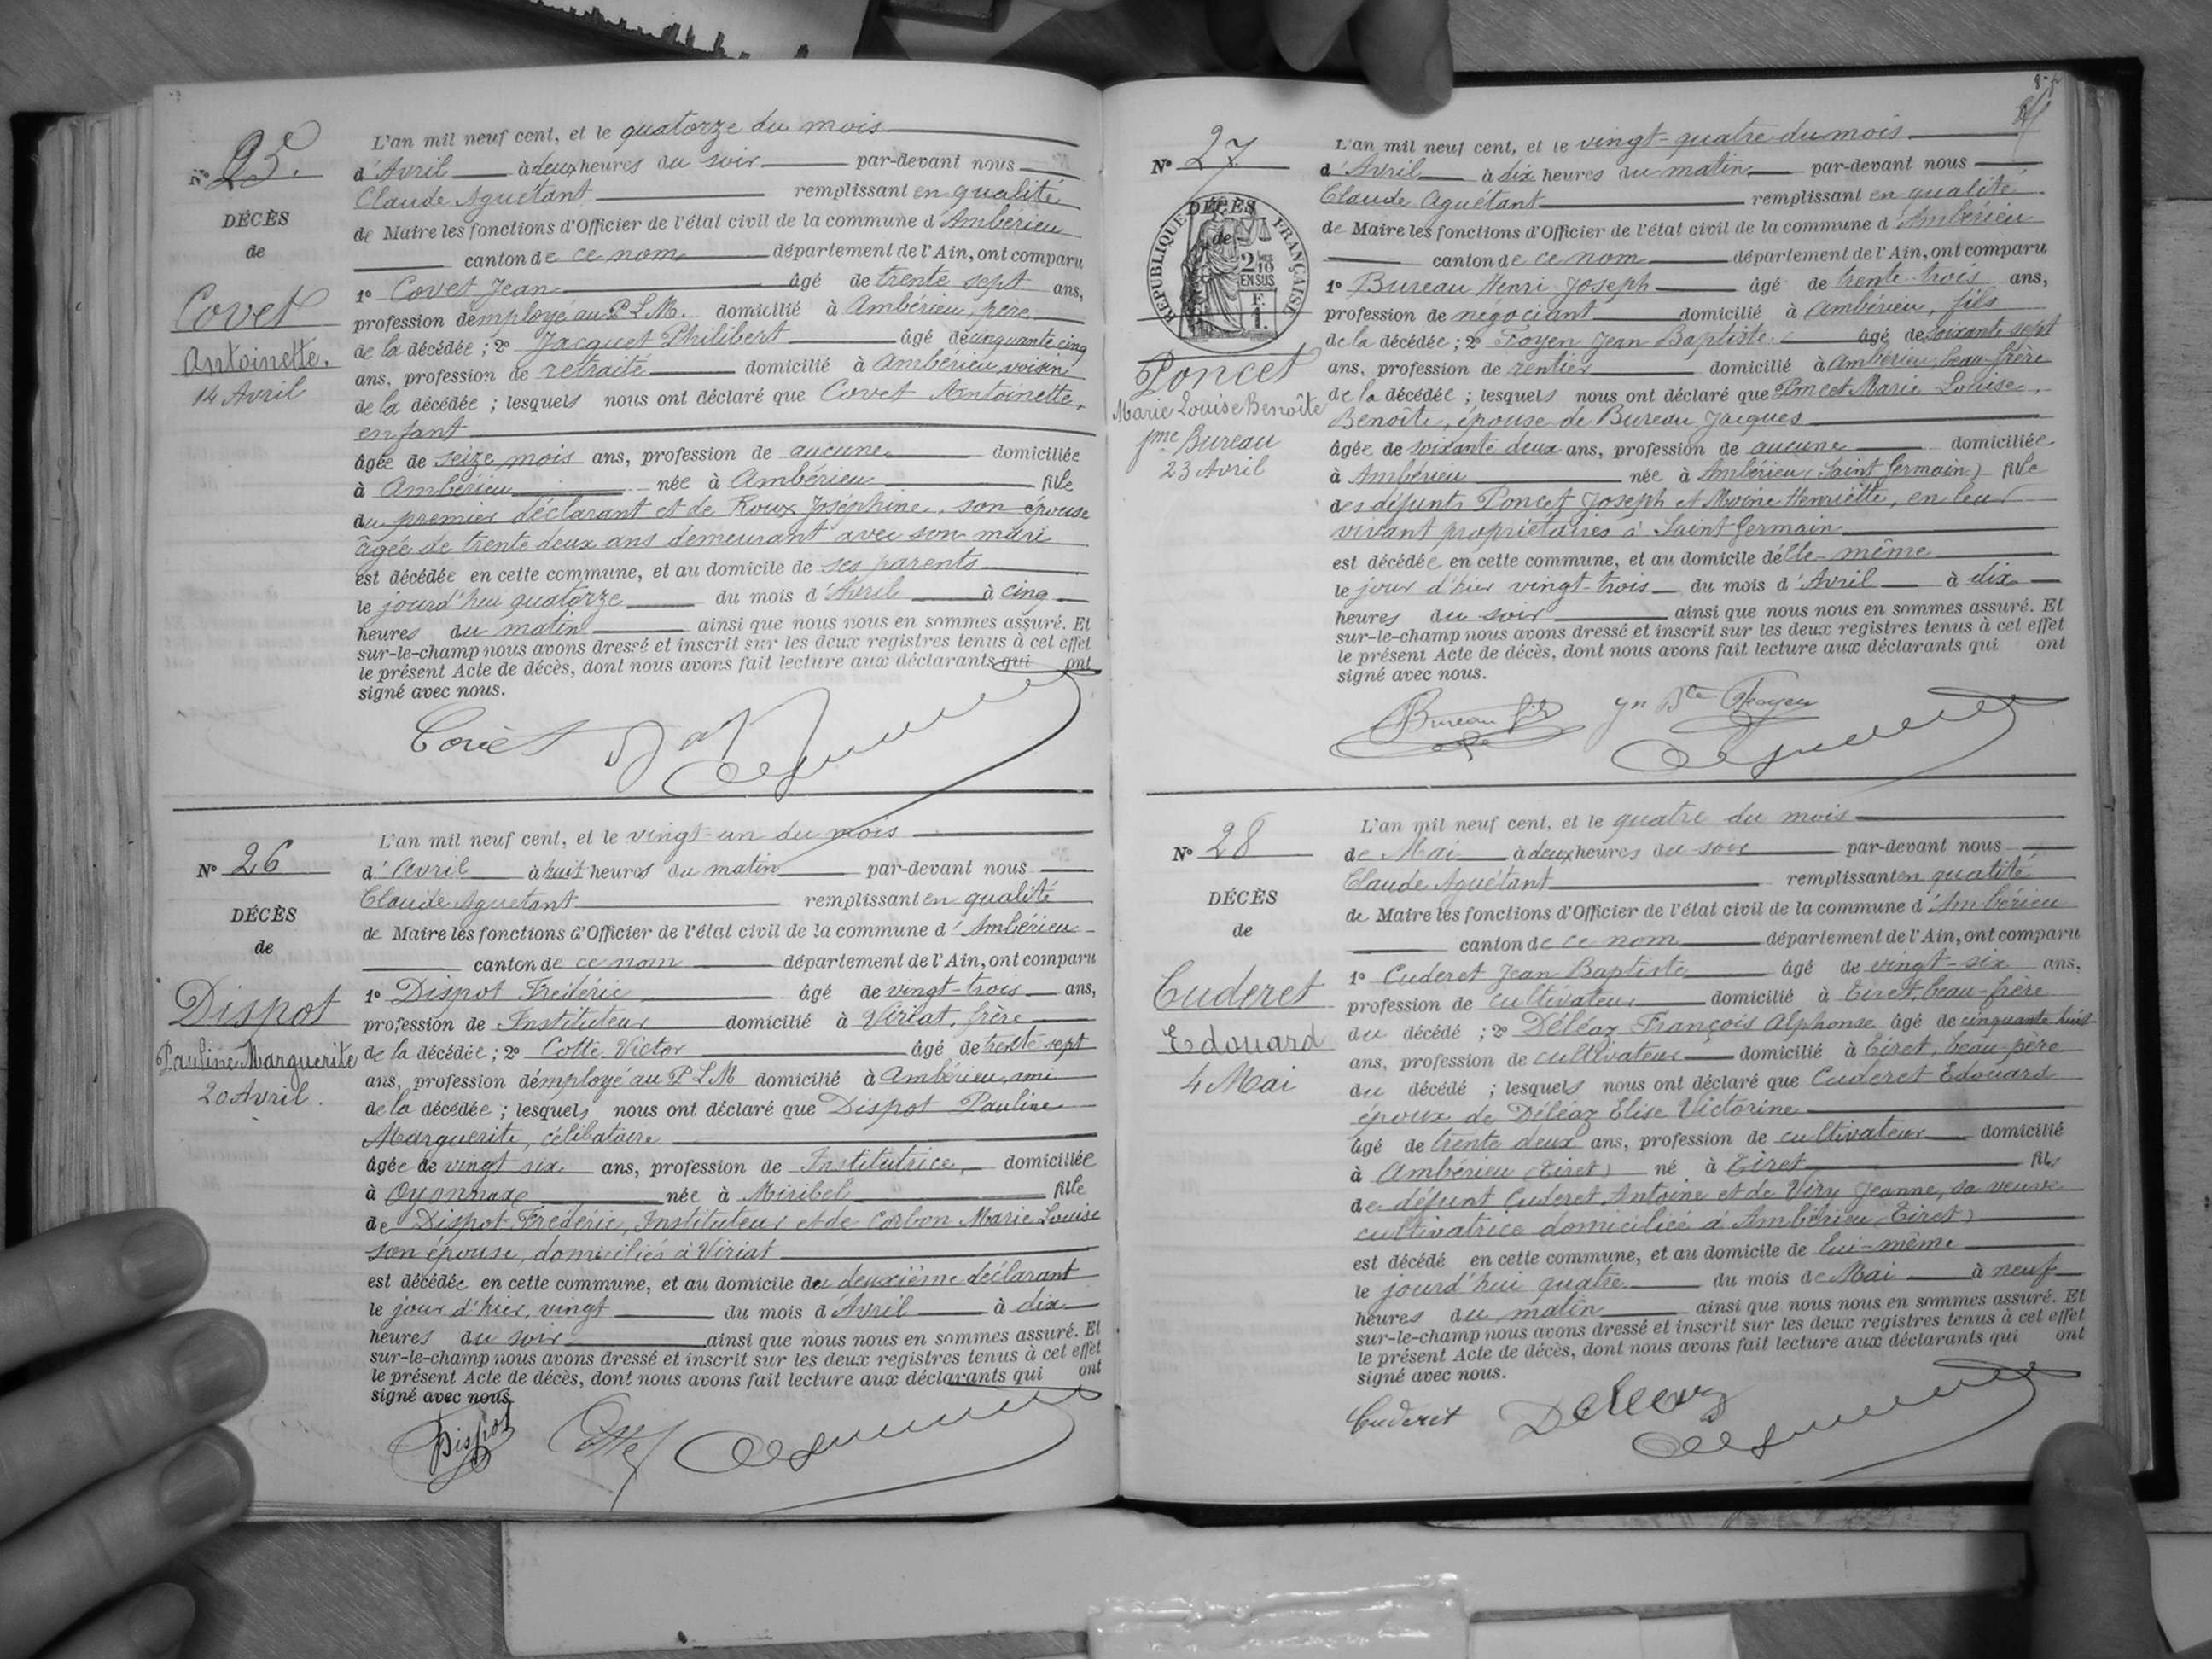 Nº 25.
DÉCÈS
de
Covet
Antoinette.
14 Avril
L'an mil neuf cent, et le quatorze du mois
d'Avril à deux heures du soir par-devant nous
Claude Aguétant remplissant en qualité
de Maire les fonctions d'Officier de l'état civil de la commune d'Ambérieu
canton de ce nom département de l'Ain, ont comparu
1º Covet Jean âgé de trente sept ans,
profession d'employé au P.L.M. domicilié à Ambérieu, père
de la décédée ; 2º Jacquet Philibert âgé de cinquante cinq
ans, profession de retraité domicilié à Ambérieu, voisin
de la décédée ; lesquels nous ont déclaré que Covet Antoinette,
enfant
âgée de seize mois ans, profession de aucune domiciliée
à Ambérieu née à Ambérieu fille
du premier déclarant et de Roux Joséphine, son épouse
âgée de trente deux ans demeurant avec son mari
est décédée en cette commune, et au domicile de ses parents
le jourd'hui quatorze du mois d'Avril à cinq
heures du matin ainsi que nous nous en sommes assuré. Et
sur-le-champ nous avons dressé et inscrit sur les deux registres tenus à cet effet
le présent Acte de décès, dont nous avons fait lecture aux déclarants qui ont
signé avec nous.
Covet
Nº 26
DÉCÈS
de
Dispot
Pauline Marguerite
20 Avril.
L'an mil neuf cent, et le vingt-un du mois
d'Avril à huit heures du matin par-devant nous
Claude Aguétant remplissant en qualité
de Maire les fonctions d'Officier de l'état civil de la commune d'Ambérieu
canton de ce nom département de l'Ain, ont comparu
1º Dispot Frédéric âgé de vingt-trois ans,
profession de Instituteur domicilié à Viriat, frère
de la décédée ; 2º Cotte Victor âgé de trente sept
ans, profession d'employé au P L M domicilié à Ambérieu, ami
de la décédée ; lesquels nous ont déclaré que Dispot Pauline
Marguerite, célibataire
âgée de vingt six ans, profession de Institutrice, domiciliée
à Oyonnax née à Miribel fille
de Dispot Frédéric, Instituteur et de Corbon Marie Louise
son épouse, domiciliés à Viriat
est décédée en cette commune, et au domicile du deuxième déclarant
le jour d'hier, vingt du mois d'Avril à dix
heures du soir ainsi que nous nous en sommes assuré. Et
sur-le-champ nous avons dressé et inscrit sur les deux registres tenus à cet effet
le présent Acte de décès, dont nous avons fait lecture aux déclarants qui ont
signé avec nous.
Dispot Cotte
Nº 27
DÉCÈS
de
RÉPUBLIQUE FRANÇAISE
2/10
EN SUS
F.
1.
Poncet
Marie Louise Benoîte
fme Bureau
23 Avril
L'an mil neuf cent, et le vingt-quatre du mois
d'Avril à dix heures du matin par-devant nous
Claude Aguétant remplissant en qualité
de Maire les fonctions d'Officier de l'état civil de la commune d'Ambérieu
canton de ce nom département de l'Ain, ont comparu
1º Bureau Henri Joseph âgé de trente-trois ans,
profession de négociant domicilié à Ambérieu, fils
de la décédée ; 2º Foyen Jean Baptiste âgé de soixante sept
ans, profession de rentier domicilié à Ambérieu, beau-frère
de la décédée ; lesquels nous ont déclaré que Poncet Marie Louise,
Benoîte, épouse de Bureau Jacques
âgée de soixante deux ans, profession de aucune domiciliée
à Ambérieu née à Ambérieu (Saint Germain) fille
des défunts Poncet Joseph et Moine Henriette, en leur
vivant propriétaires à Saint Germain
est décédée en cette commune, et au domicile d'elle-même
le jour d'hier vingt-trois du mois d'Avril à dix
heures du soir ainsi que nous nous en sommes assuré. Et
sur-le-champ nous avons dressé et inscrit sur les deux registres tenus à cet effet
le présent Acte de décès, dont nous avons fait lecture aux déclarants qui ont
signé avec nous.
Bureau fils Jn Bte Foyen
Nº 28
DÉCÈS
de
Cuderet
Edouard
4 Mai
L'an mil neuf cent, et le quatre du mois
de Mai à deux heures du soir par-devant nous
Claude Aguétant remplissant en qualité
de Maire les fonctions d'Officier de l'état civil de la commune d'Ambérieu
canton de ce nom département de l'Ain, ont comparu
1º Cuderet Jean Baptiste âgé de vingt-six ans,
profession de cultivateur domicilié à Tiret, beau-frère
du décédé ; 2º Déléaz François Alphonse âgé de cinquante huit
ans, profession de cultivateur domicilié à Tiret, beau-père
du décédé ; lesquels nous ont déclaré que Cuderet Edouard
époux de Déléaz Elise Victorine
âgé de trente deux ans, profession de cultivateur domicilié
à Ambérieu (Tiret) né à Tiret fils
de défunt Cuderet Antoine et de Viry Jeanne, sa veuve
cultivatrice domiciliée à Ambérieu (Tiret)
est décédé en cette commune, et au domicile de lui-même
le jourd'hui quatre du mois de Mai à neuf
heures du matin ainsi que nous nous en sommes assuré. Et
sur-le-champ nous avons dressé et inscrit sur les deux registres tenus à cet effet
le présent Acte de décès, dont nous avons fait lecture aux déclarants qui ont
signé avec nous.
Cuderet Deleaz